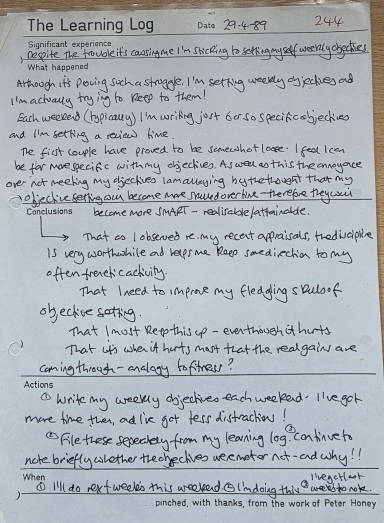 The Learning Log Date 29-4-89 244
Significant experience
Despite the trouble it's causing me I'm sticking to setting myself weekly objectives
What happened
Although it's proving such a struggle, I'm setting weekly objectives and
I'm actually trying to keep to them!
Each weekend (typically) I'm writing just 6 or so specific objectives
and I'm setting a review time.
The first couple have proved to be somewhat loose. I feel I can
be far more specific with my objectives. As well as this the annoyance
over not meeting my objectives I am allaying by the thought that my
objective setting will become more skilled over time - therefore they will
become more SMART - realisable/attainable.
Conclusions
That as I observed re. my recent appraisals, the discipline
is very worthwhile and helps me keep some direction to my
often frenetic activity.
That I need to improve my fledgling skills of
objective setting.
That I must keep this up - even though it hurts
That it's when it hurts most that the real gains are
coming through - analogy to fitness?
Actions
① Write my weekly objectives each weekend - I've got
more time then, and I've got less distraction!
② File these seperately from my learning log. ③ Continue to
note briefly whether the objectives were met or not - and why!!
When
① I'll do next week's this weekend ② I'm doing this ③ I've got last
week's to note.
pinched, with thanks, from the work of Peter Honey